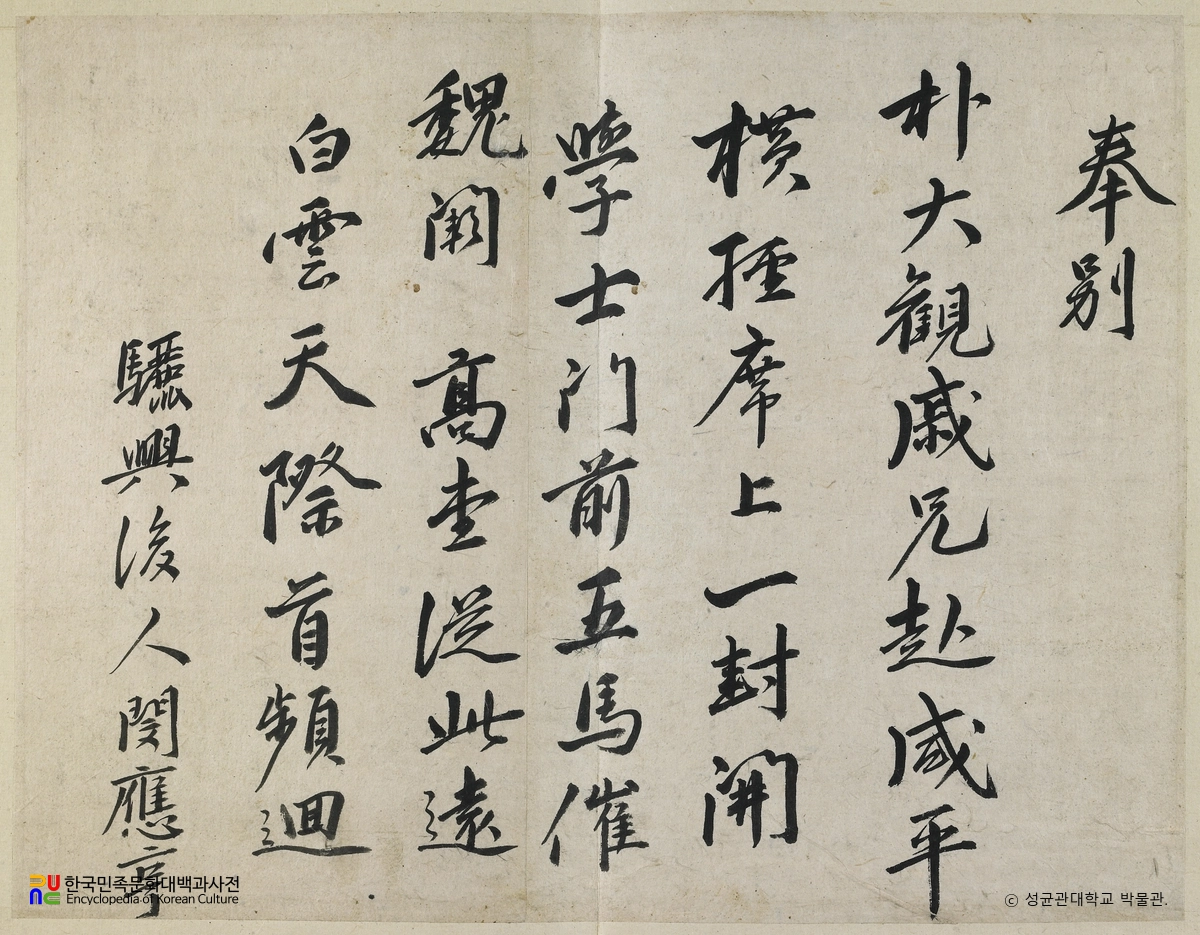 奉別
朴大觀戚兄赴咸平
橫經席上一封開
學士門前五馬催
魏闕高堂從此遠
白雲天際首頻迴
驪興後人閔應亨
한국민족문화대백과사전
Encyclopedia of Korean Culture
© 성균관대학교 박물관.